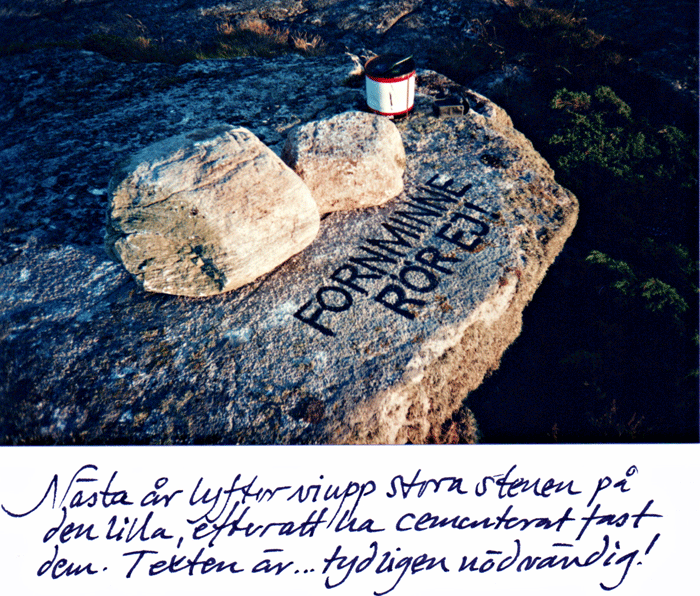 FORNMINNE
RÖR EJ!
Nästa år lyfter vi upp stora stenen på
den lilla, efter att ha cementerat fast
dem. Texten är... tydligen nödvändig!